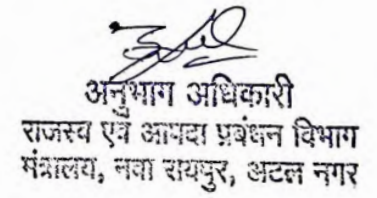 अनुभाग अधिकारी
राजस्व एवं आपदा प्रबंधन विभाग
मंत्रालय, नवा रायपुर, अटल नगर